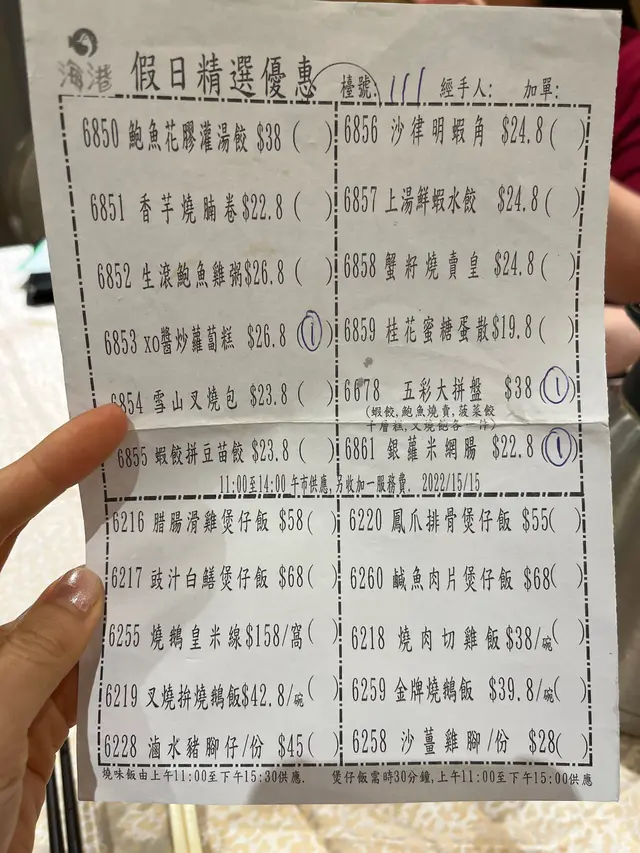 海港 假日精選優惠 檯號: 111 經手人: 加單:
6850 鮑魚花膠灌湯餃 $38 ( ) 6856 沙律明蝦角 $24.8 ( )
6851 香芋燒腩卷 $22.8 ( ) 6857 上湯鮮蝦水餃 $24.8 ( )
6852 生滾鮑魚雞粥 $26.8 ( ) 6858 蟹籽燒賣皇 $24.8 ( )
6853 xo醬炒蘿蔔糕 $26.8 (1) 6859 桂花蜜糖蛋散 $19.8 ( )
6854 雪山叉燒包 $23.8 ( ) 6678 五彩大拼盤 $38 (1)
(蝦餃,鮑魚燒賣,菠菜餃
千層糕,叉燒飽各一件)
6855 蝦餃拼豆苗餃 $23.8 ( ) 6861 銀蘿米網腸 $22.8 (1)
11:00至14:00 午市供應,另收加一服務費. 2022/15/15
6216 腊腸滑雞煲仔飯 $58 ( ) 6220 鳳爪排骨煲仔飯 $55 ( )
6217 豉汁白鱔煲仔飯 $68 ( ) 6260 鹹魚肉片煲仔飯 $68 ( )
6255 燒鵝皇米線 $158/窩 ( ) 6218 燒肉切雞飯 $38/碗 ( )
6219 叉燒拚燒鵝飯 $42.8/碗 ( ) 6259 金牌燒鵝飯 $39.8/碗 ( )
6228 滷水豬腳仔/份 $45 ( ) 6258 沙薑雞腳/份 $28 ( )
燒味飯由上午11:00至下午15:30供應. 煲仔飯需時30分鐘,上午11:00至下午15:00供應